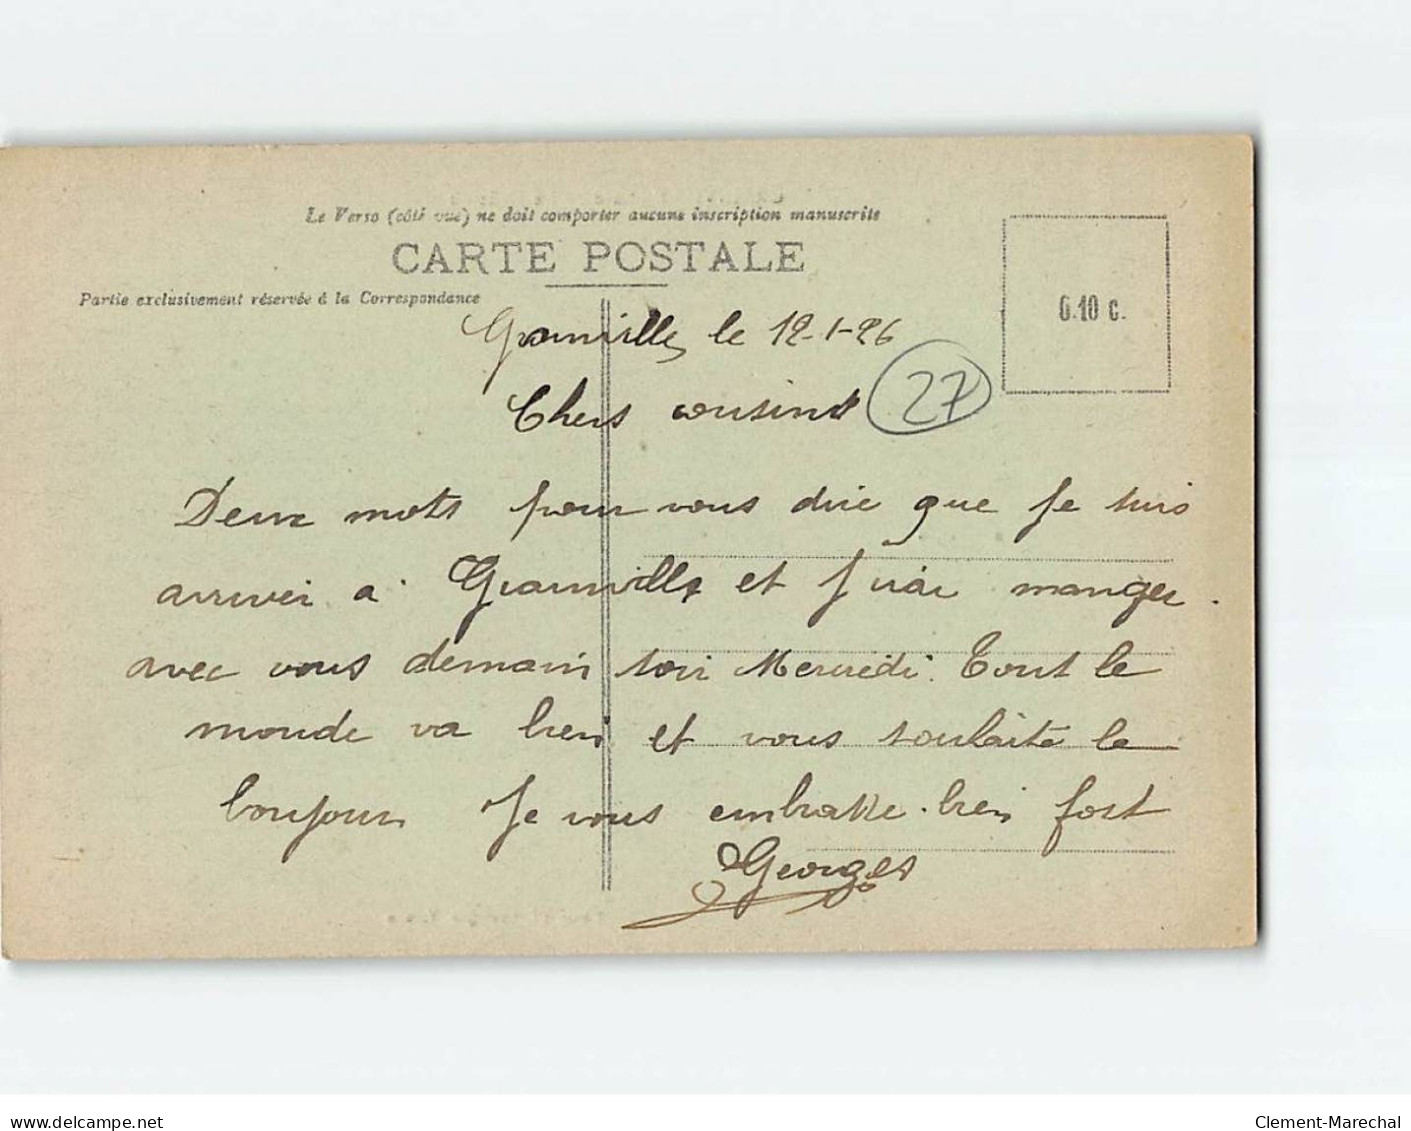 Le Verso (côté vue) ne doit comporter aucune inscription manuscrite
CARTE POSTALE
Partie exclusivement réservée à la Correspondance
0.10 c.
Granville le 12-1-26
27
Chers cousins
Deux mots pour vous dire que je suis
arriver a Granville et j'irai manger
avec vous demain soir Mercredi. Tout le
monde va bien et vous souhaite le
bonjour Je vous embrasse bien fort
Georges
www.delcampe.net
Clement-Marechal